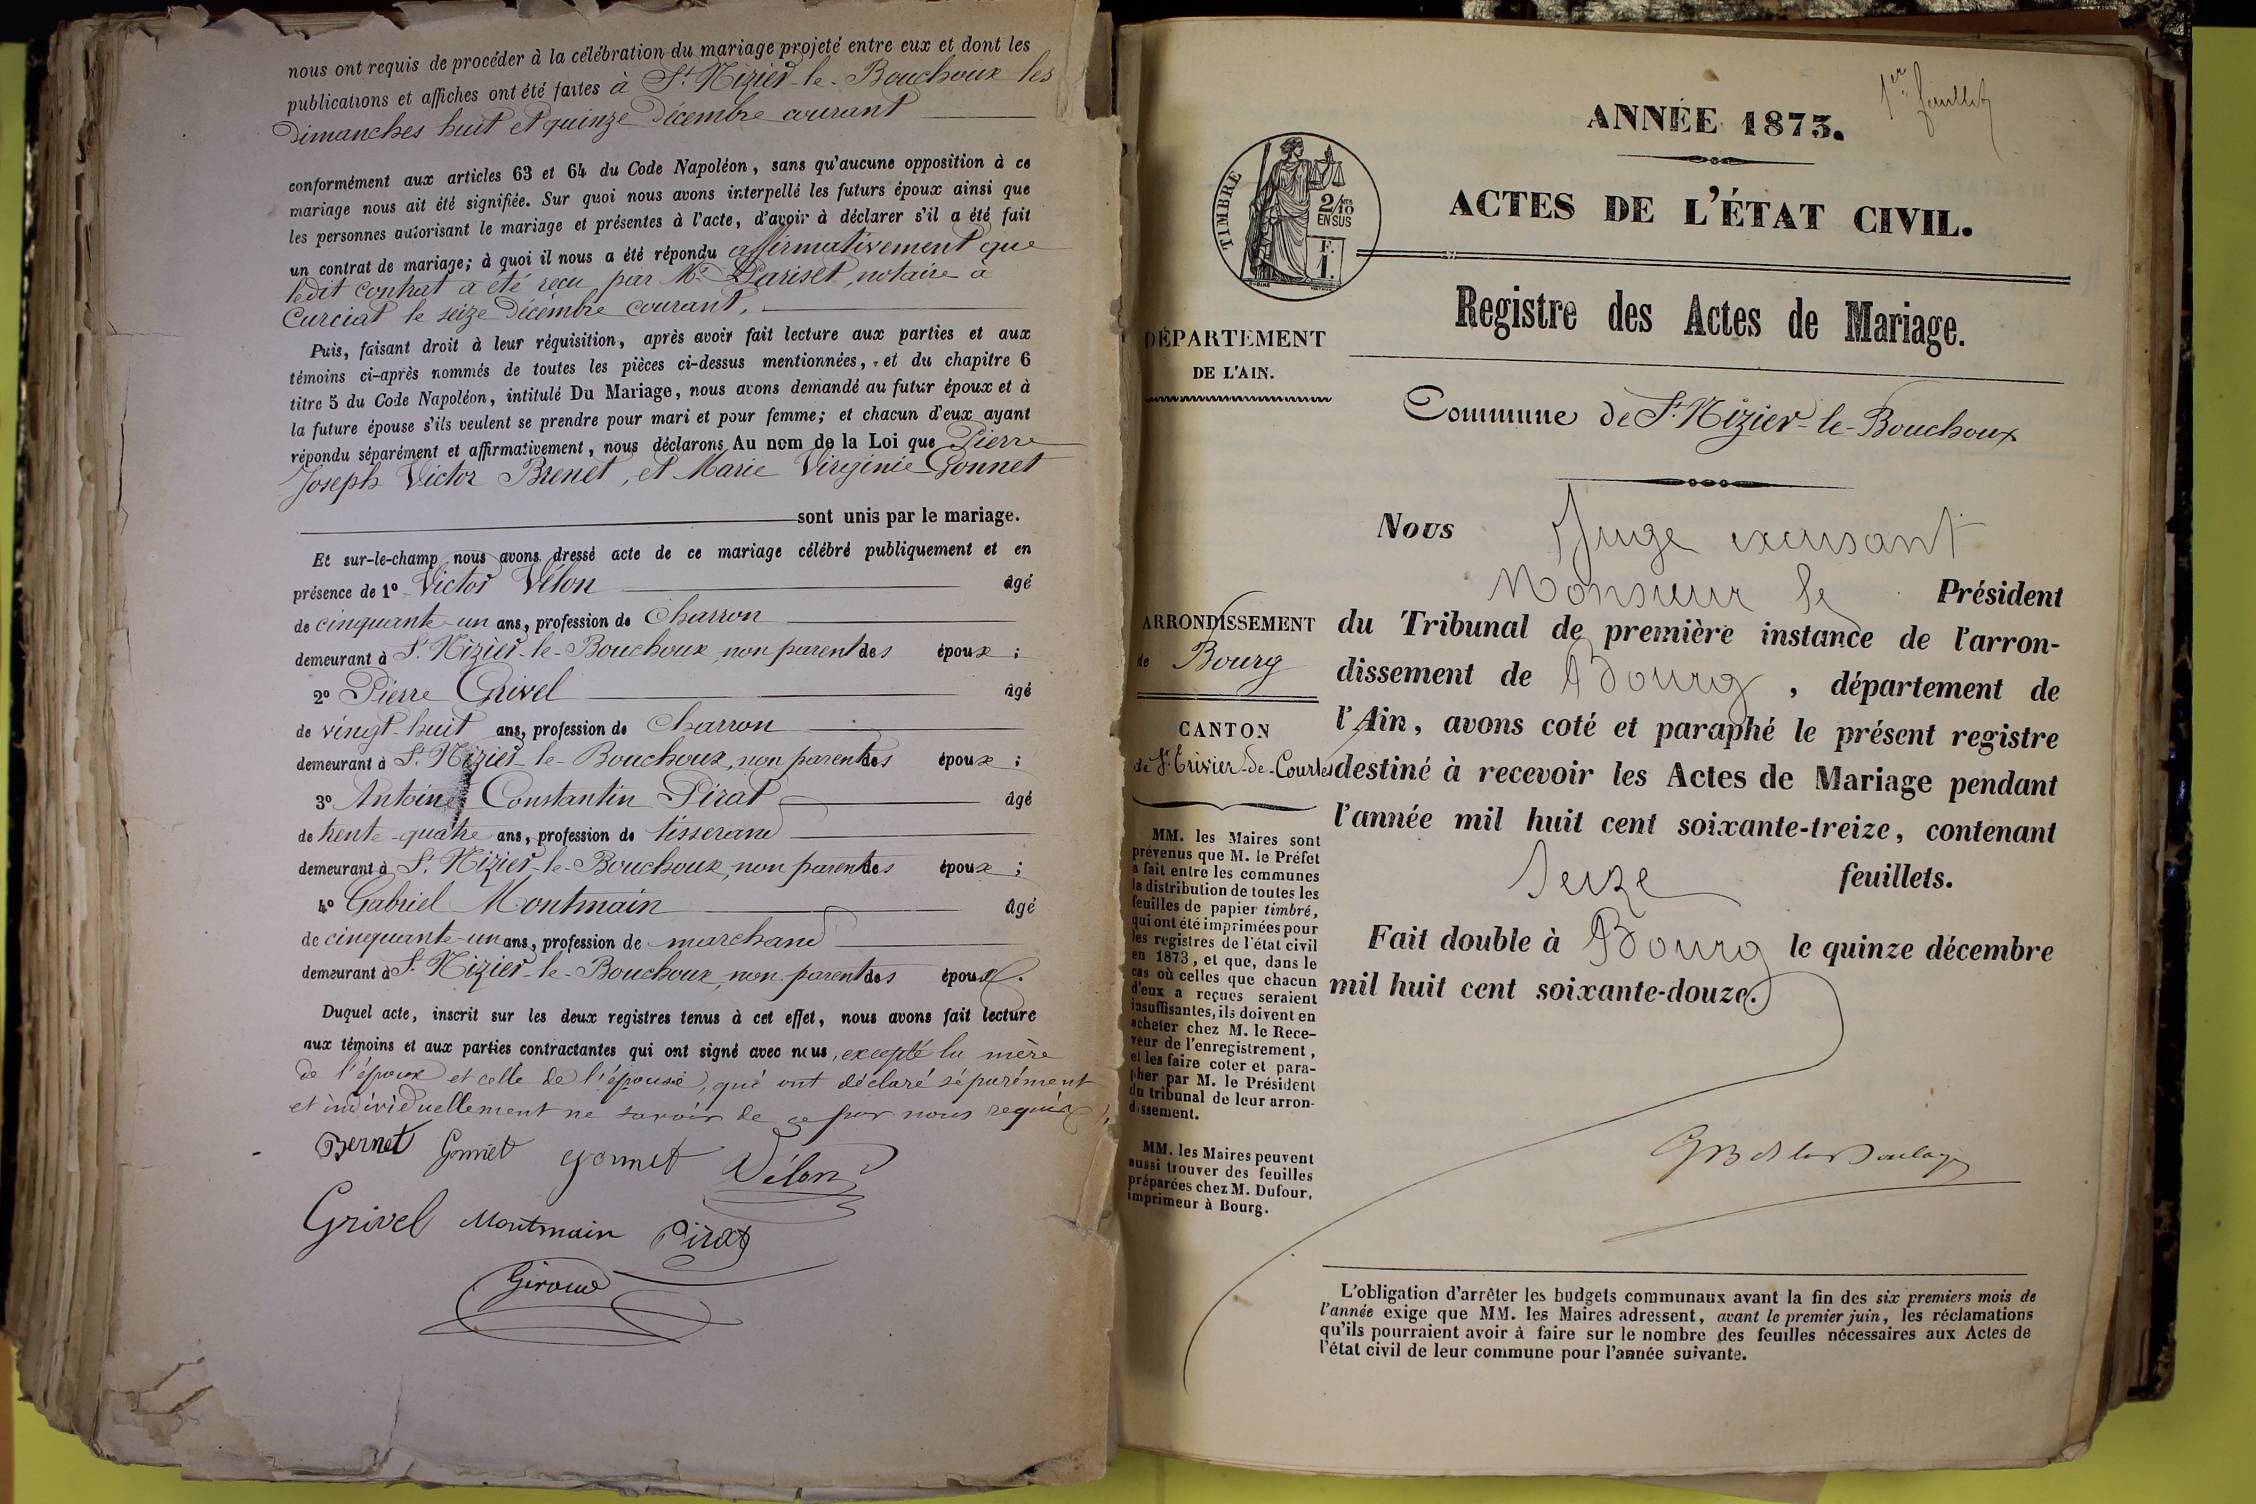 nous ont requis de procéder à la célébration du mariage projeté entre eux et dont les
publications et affiches ont été faites à St. Nizier-le-Bouchoux les
Dimanches huit et quinze Décembre courant
conformément aux articles 63 et 64 du Code Napoléon, sans qu'aucune opposition à ce
mariage nous ait été signifiée. Sur quoi nous avons interpellé les futurs époux ainsi que
les personnes autorisant le mariage et présentes à l'acte, d'avoir à déclarer s'il a été fait
un contrat de mariage; à quoi il nous a été répondu affirmativement que
ledit contrat a été reçu par Me. Pariset, notaire à
Curciat le seize Décembre courant.
Puis, faisant droit à leur réquisition, après avoir fait lecture aux parties et aux
témoins ci-après nommés de toutes les pièces ci-dessus mentionnées, et du chapitre 6
titre 5 du Code Napoléon, intitulé Du Mariage, nous avons demandé au futur époux et à
la future épouse s'ils veulent se prendre pour mari et pour femme; et chacun d'eux ayant
répondu séparément et affirmativement, nous déclarons Au nom de la Loi que Pierre
Joseph Victor Brenet, et Marie Virginie Gonnet
sont unis par le mariage.
Et sur-le-champ nous avons dressé acte de ce mariage célébré publiquement et en
présence de 1º Victor Vélon âgé
de cinquante-un ans, profession de Charron
demeurant à St. Nizier-le-Bouchoux, non parent des époux;
2º Pierre Grivel âgé
de vingt-huit ans, profession de Charron
demeurant à St. Nizier-le-Bouchoux, non parent des époux;
3º Antoine Constantin Pirat âgé
de trente-quatre ans, profession de tisserand
demeurant à St. Nizier-le-Bouchoux, non parent des époux;
4º Gabriel Montmain âgé
de cinquante-un ans, profession de marchand
demeurant à St. Nizier-le-Bouchoux, non parent des époux.
Duquel acte, inscrit sur les deux registres tenus à cet effet, nous avons fait lecture
aux témoins et aux parties contractantes qui ont signé avec nous, excepté la mère
de l'époux et celle de l'épouse, qui ont déclaré séparément
et individuellement ne savoir de ce par nous requis
Bernet Gonnet gonnet Vélon
Grivel Montmain Pirat
Giroud
1er feuillet
ANNÉE 1873.
ACTES DE L'ÉTAT CIVIL.
TIMBRE
2/10
EN SUS
F.
1.
Registre des Actes de Mariage.
DÉPARTEMENT
DE L'AIN.
Commune de St. Nizier-le-Bouchoux
ARRONDISSEMENT
de Bourg
CANTON
de St. Trivier-de-Courtes
MM. les Maires sont
prévenus que M. le Préfet
a fait entre les communes
la distribution de toutes les
feuilles de papier timbré,
qui ont été imprimées pour
les registres de l'état civil
en 1873, et que, dans le
cas où celles que chacun
d'eux a reçues seraient
insuffisantes, ils doivent en
acheter chez M. le Rece-
veur de l'enregistrement,
et les faire coter et para-
pher par M. le Président
du tribunal de leur arron-
dissement.
MM. les Maires peuvent
aussi trouver des feuilles
préparées chez M. Dufour,
imprimeur à Bourg.
Nous Juge excusant
Monsieur le Président
du Tribunal de première instance de l'arron-
dissement de Bourg, département de
l'Ain, avons coté et paraphé le présent registre
destiné à recevoir les Actes de Mariage pendant
l'année mil huit cent soixante-treize, contenant
Seize feuillets.
Fait double à Bourg le quinze décembre
mil huit cent soixante-douze.
L'obligation d'arrêter les budgets communaux avant la fin des six premiers mois de
l'année exige que MM. les Maires adressent, avant le premier juin, les réclamations
qu'ils pourraient avoir à faire sur le nombre des feuilles nécessaires aux Actes de
l'état civil de leur commune pour l'année suivante.